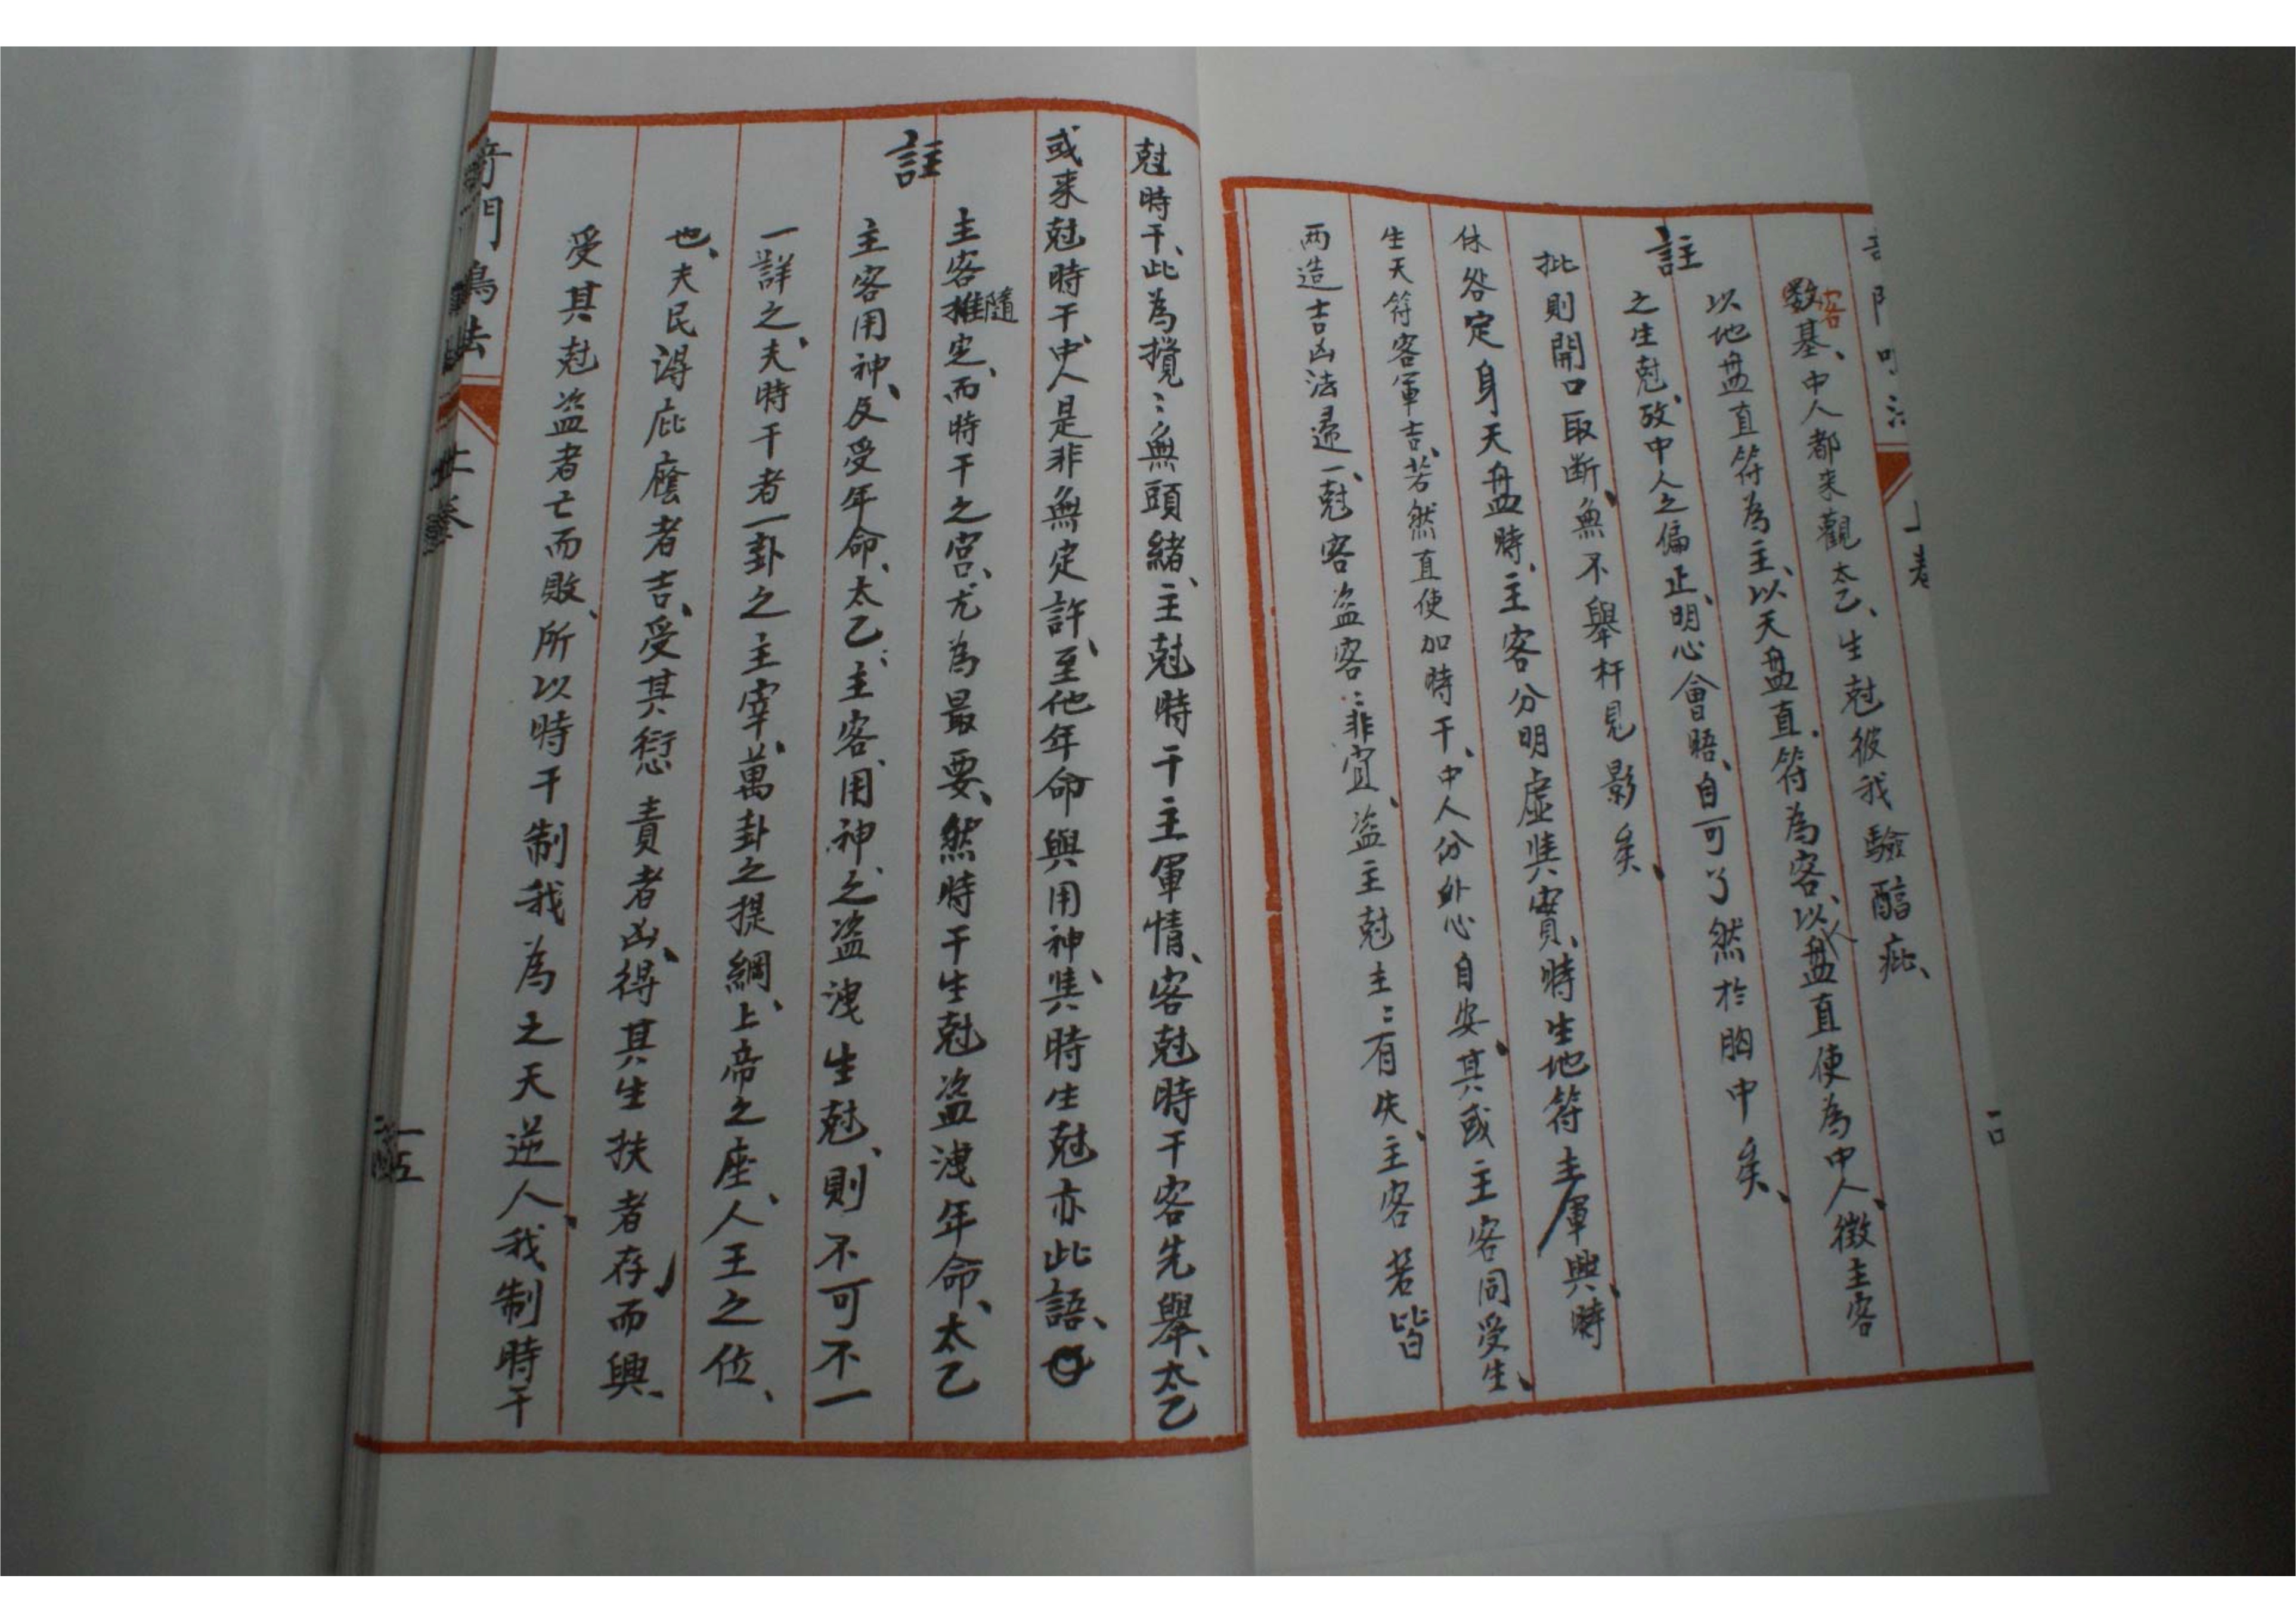 客
数基、中人都来觀太乙、生尅彼我驗醕疵、
註
以地盘直符為主、以天盘直符為客、以人盘直使為中人、徵主客
之生尅、攷中人之偏正、明心會晤、自可了然於胸中矣、
批則開口取断、無不舉杆見影矣、
休咎定身天盘時、主客分明虛與實、時生地符主軍興、時
生天符客軍吉、若然直使加時干、中人份外心自安、其或主客同受生、
两造吉凶法遝一、尅客盗客：：非宜、盗主尅主：：有失、主客若皆
尅時干、此為攪：無頭緒、主尅時干主軍情、客尅時干客先舉、太乙
或来尅時干、中人是非無定許、至他年命與用神、與時生尅亦此語、
註
主客推隨定、而時干之宮、尤為最要、然時干生尅盗洩年命、太乙
主客用神、反受年命、太乙、主客、用神、之盗洩生尅、則不可不一
一詳之、夫時干者一卦之主宰、萬卦之提綱、上帝之座、人王之位、
也、夫民得庇廕者吉、受其愆責者凶、得其生扶者存、而興、
受其尅盗者亡而敗、所以時干制我為之天逆人、我制時干
奇門鳴法
上卷